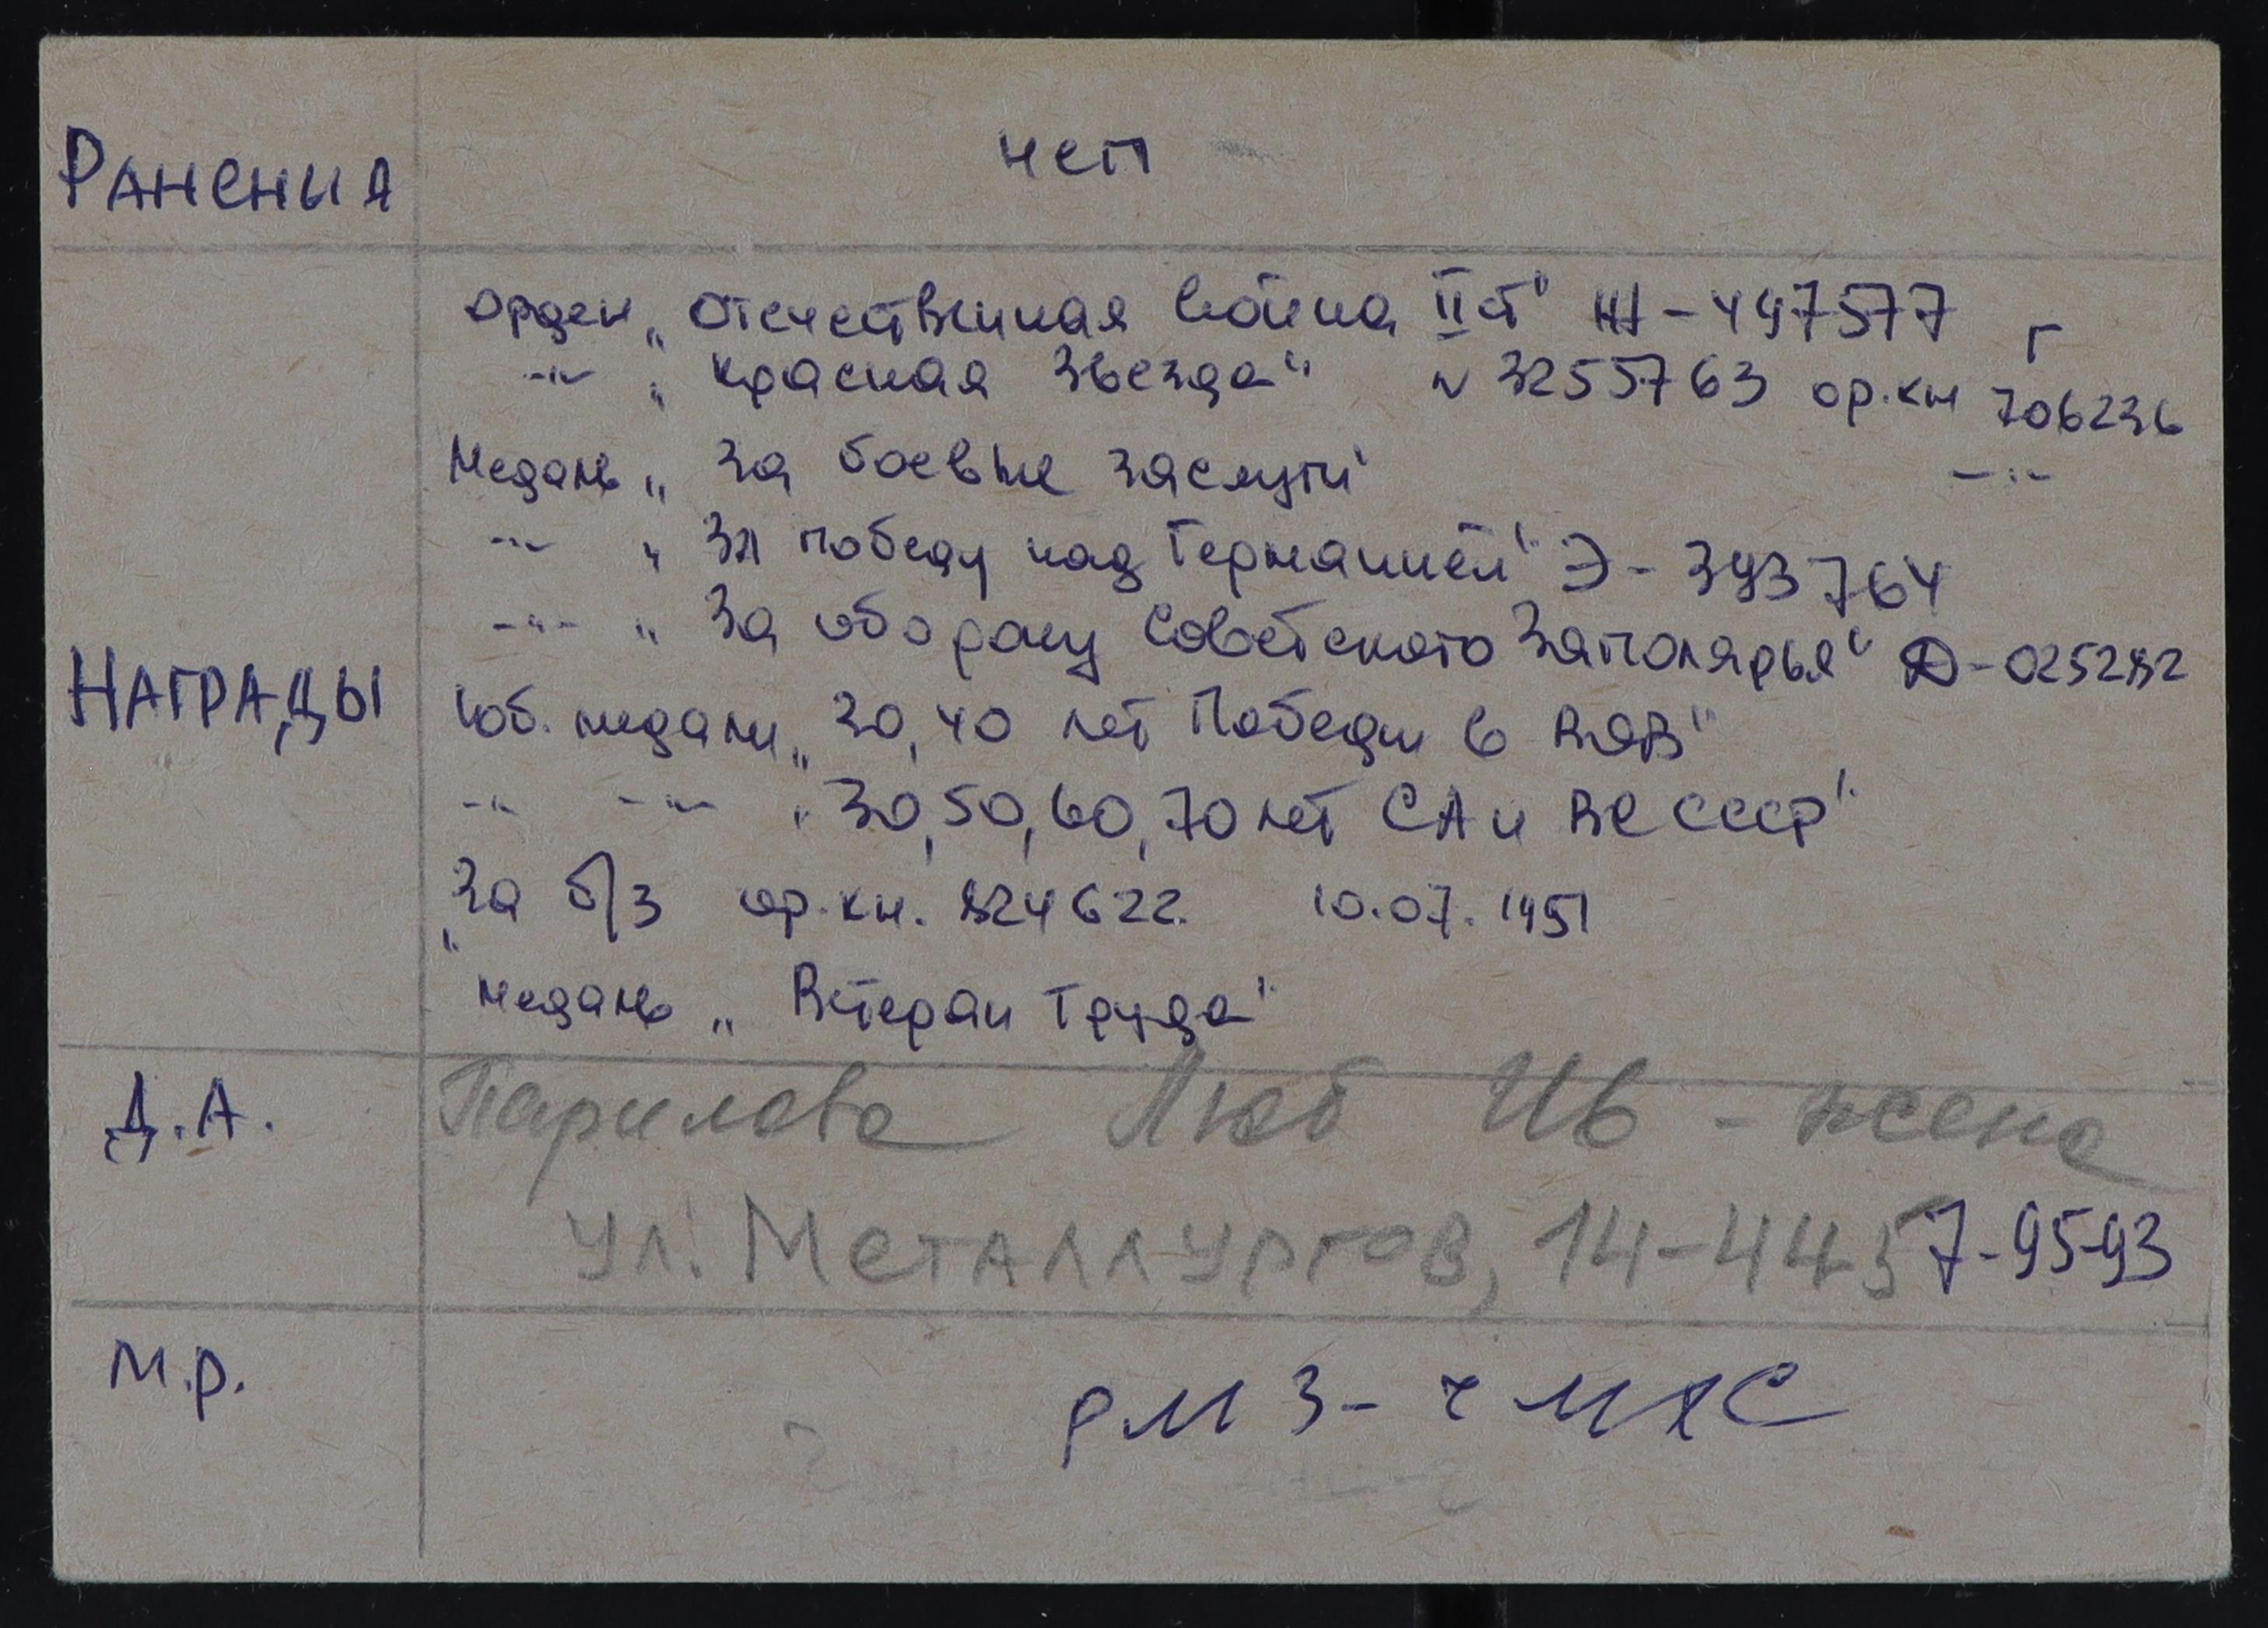 Ранения нет
орден „Отечественная война II ст" Ж-497577
-"- „Красная Звезда" N 3255763 ор.кн Г 706236
Медаль „За боевые заслуги" -"-
-"- „За победу над Германией" Э-393764
-"- „За оборону Советского Заполярья" Д-025282
Награды
Юб. медали „30, 40 лет Победы в ВОВ"
-"- -"- „30, 50, 60, 70 лет СА и ВС СССР"
„За б/з ор.кн. 824622 10.07.1951
медаль „Ветеран труда"
Д.А. Парилова Люб Ив - жена
ул. Металлургов, 14-44, 7-95-93
М.р. РМЗ-